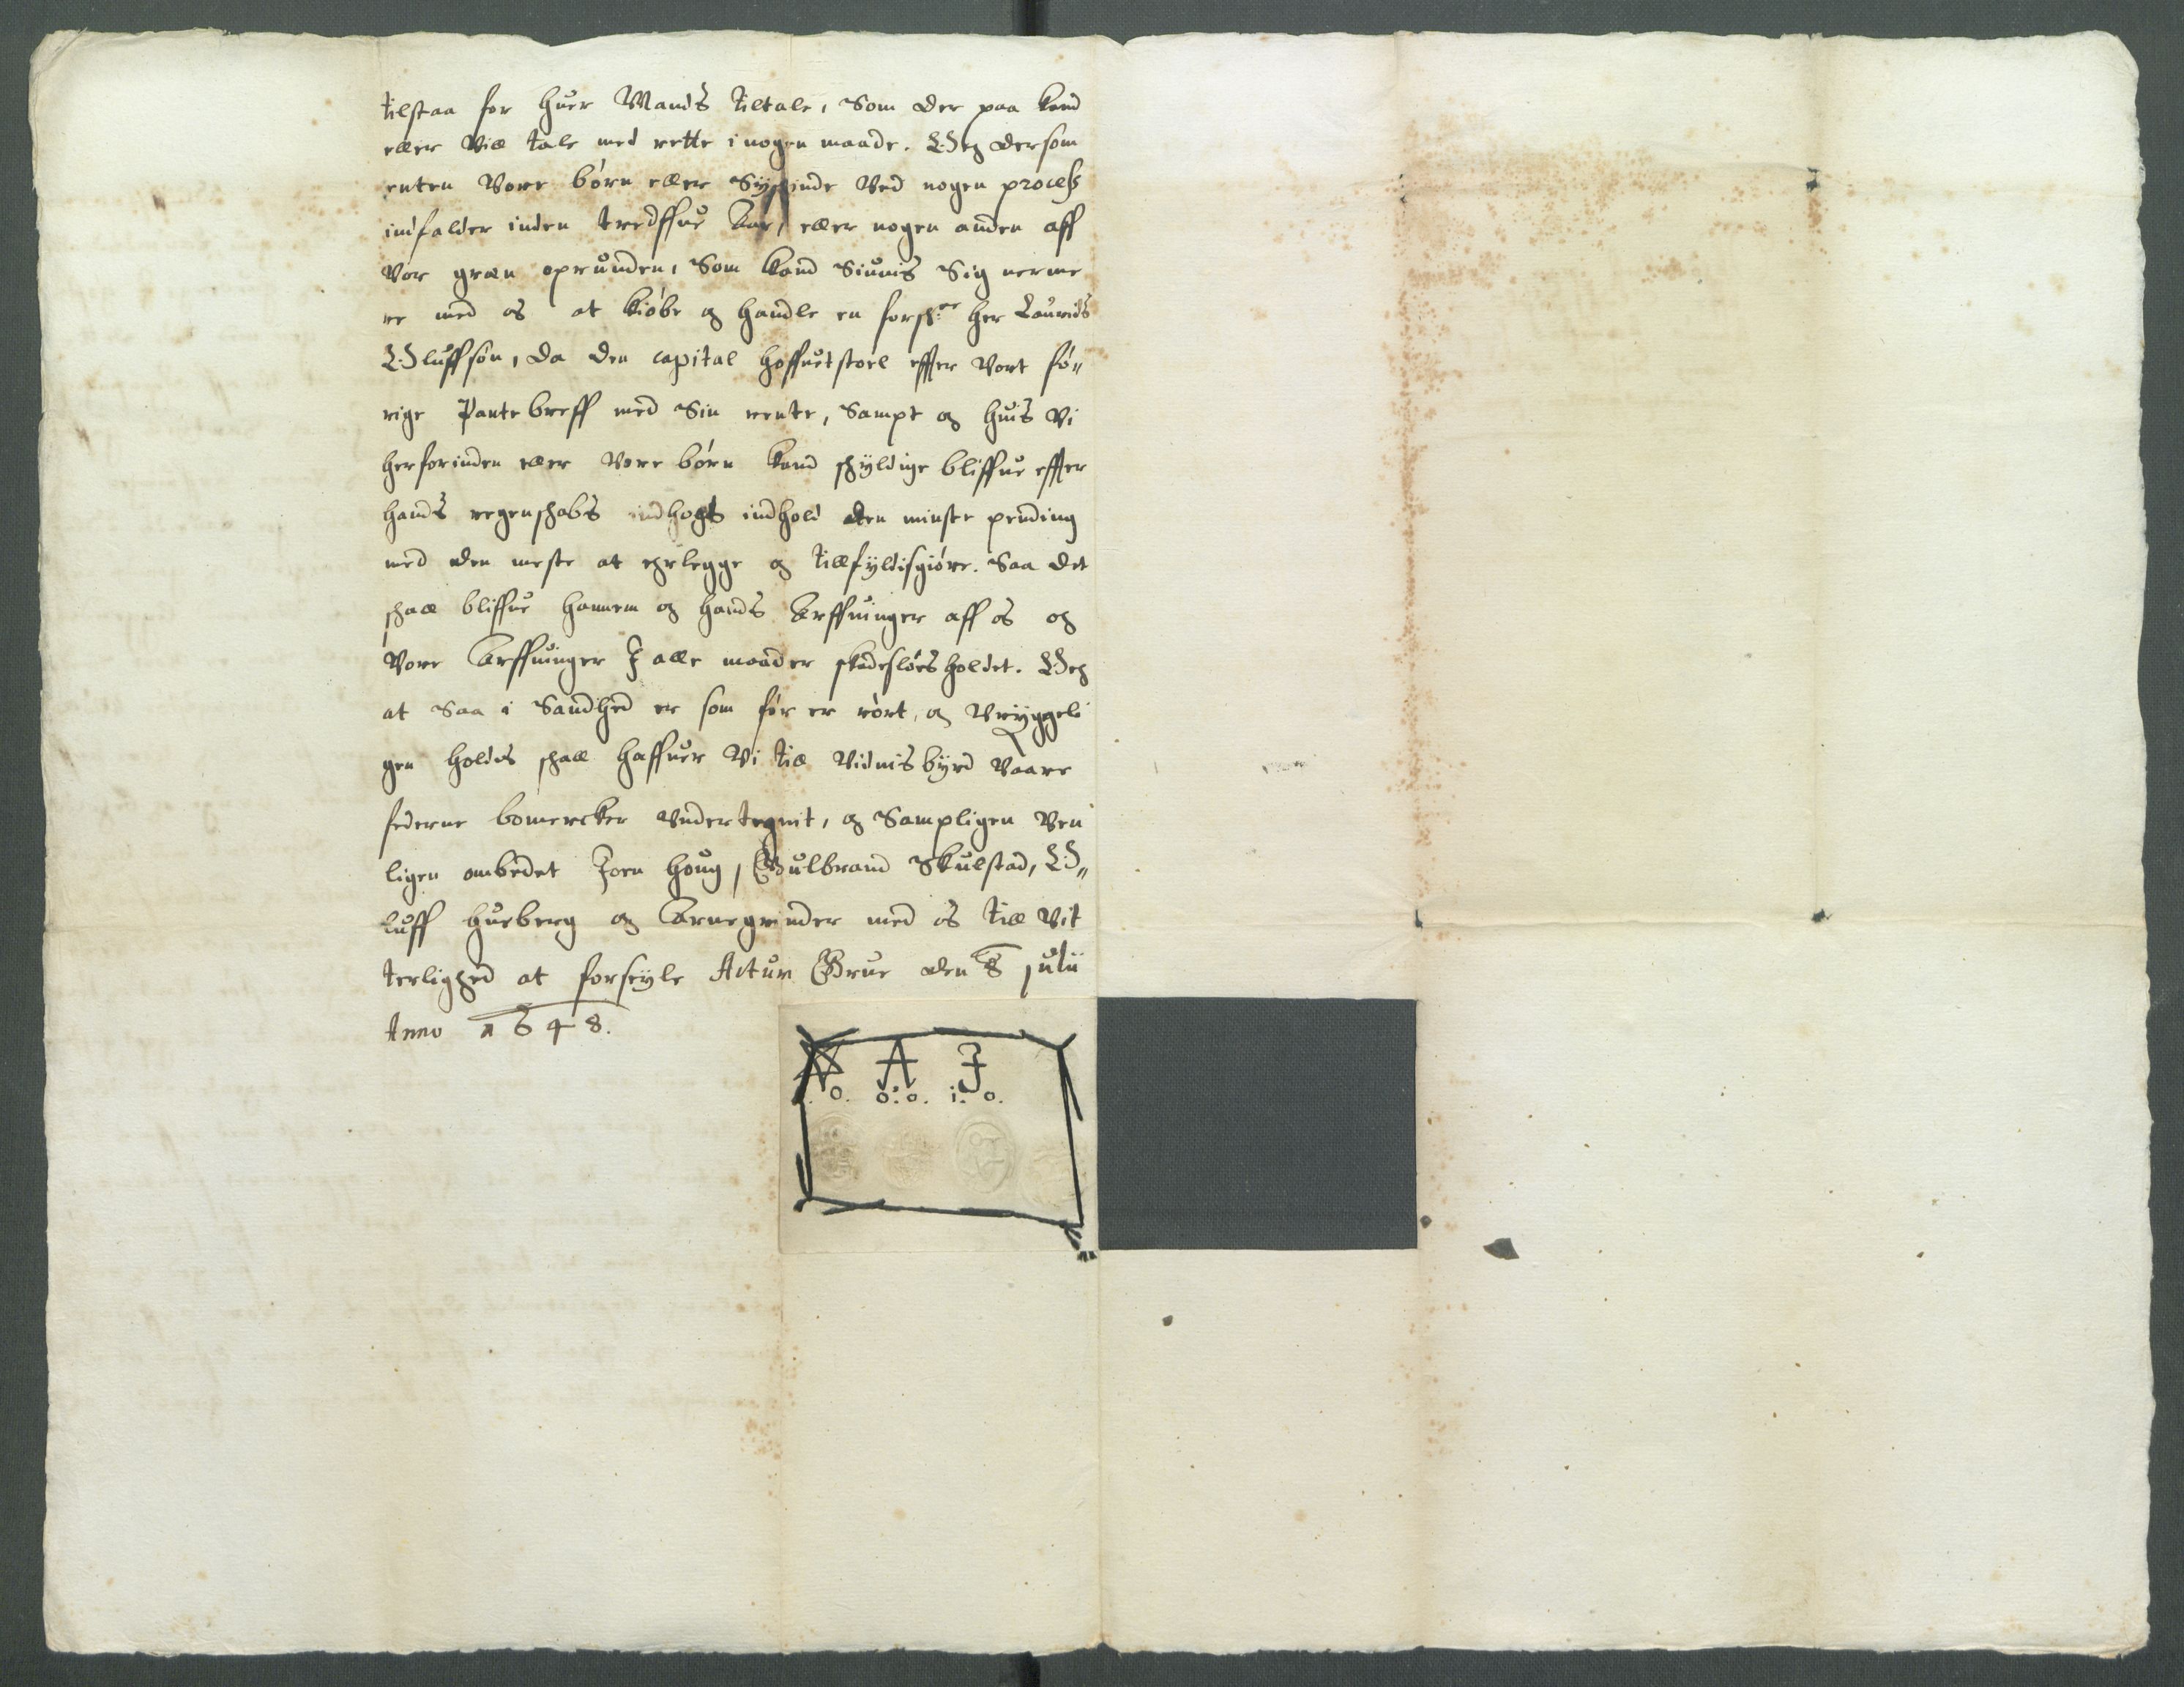 tilstaa for huer Mands tiltale, Som der paa kand
eller Vill tale med rette i nogen maade. Og dersom
enten Vore børn eller Sÿskinde Ved nogen process
indfalder inden tredssue Aar, eller nogen anden aff
Vor græn oprunden, Som kand Siunis Sig nerme
re med os at kiøbe og handle en forsch:ne her Laurids
Oluffsøn, da den capital hoffuetstoel effter Vort fø„
rige Pantebreff med Sin rente, Sampt og huis Vi
herforinden eller Vore børn kand schÿldige bliffue effter
hands regenschabs indhold den minste pending
med den meste at erlegge og tillfÿldisgiøre. Saa det
schall bliffue hannem og hands Arffuinger aff os og
Vore Arffuinger J alle maader skadesløes holdet. Og
at Saa i Sandhed er som før er rørt, og Vrÿggeli
gen holdes schall haffuer Vi till Vidnisbÿrd Vaare
federne bomercker Vndertegnit, og Sampligen Ven
ligen ombedet Joen houg, Gulbrand Skulstad, O„
luff hueberg og Arnegrinder med os till Vit
terlighed at forseÿle Actum Grue den 8 julii
Anno 1648.
A J
o. o:o. i:o.